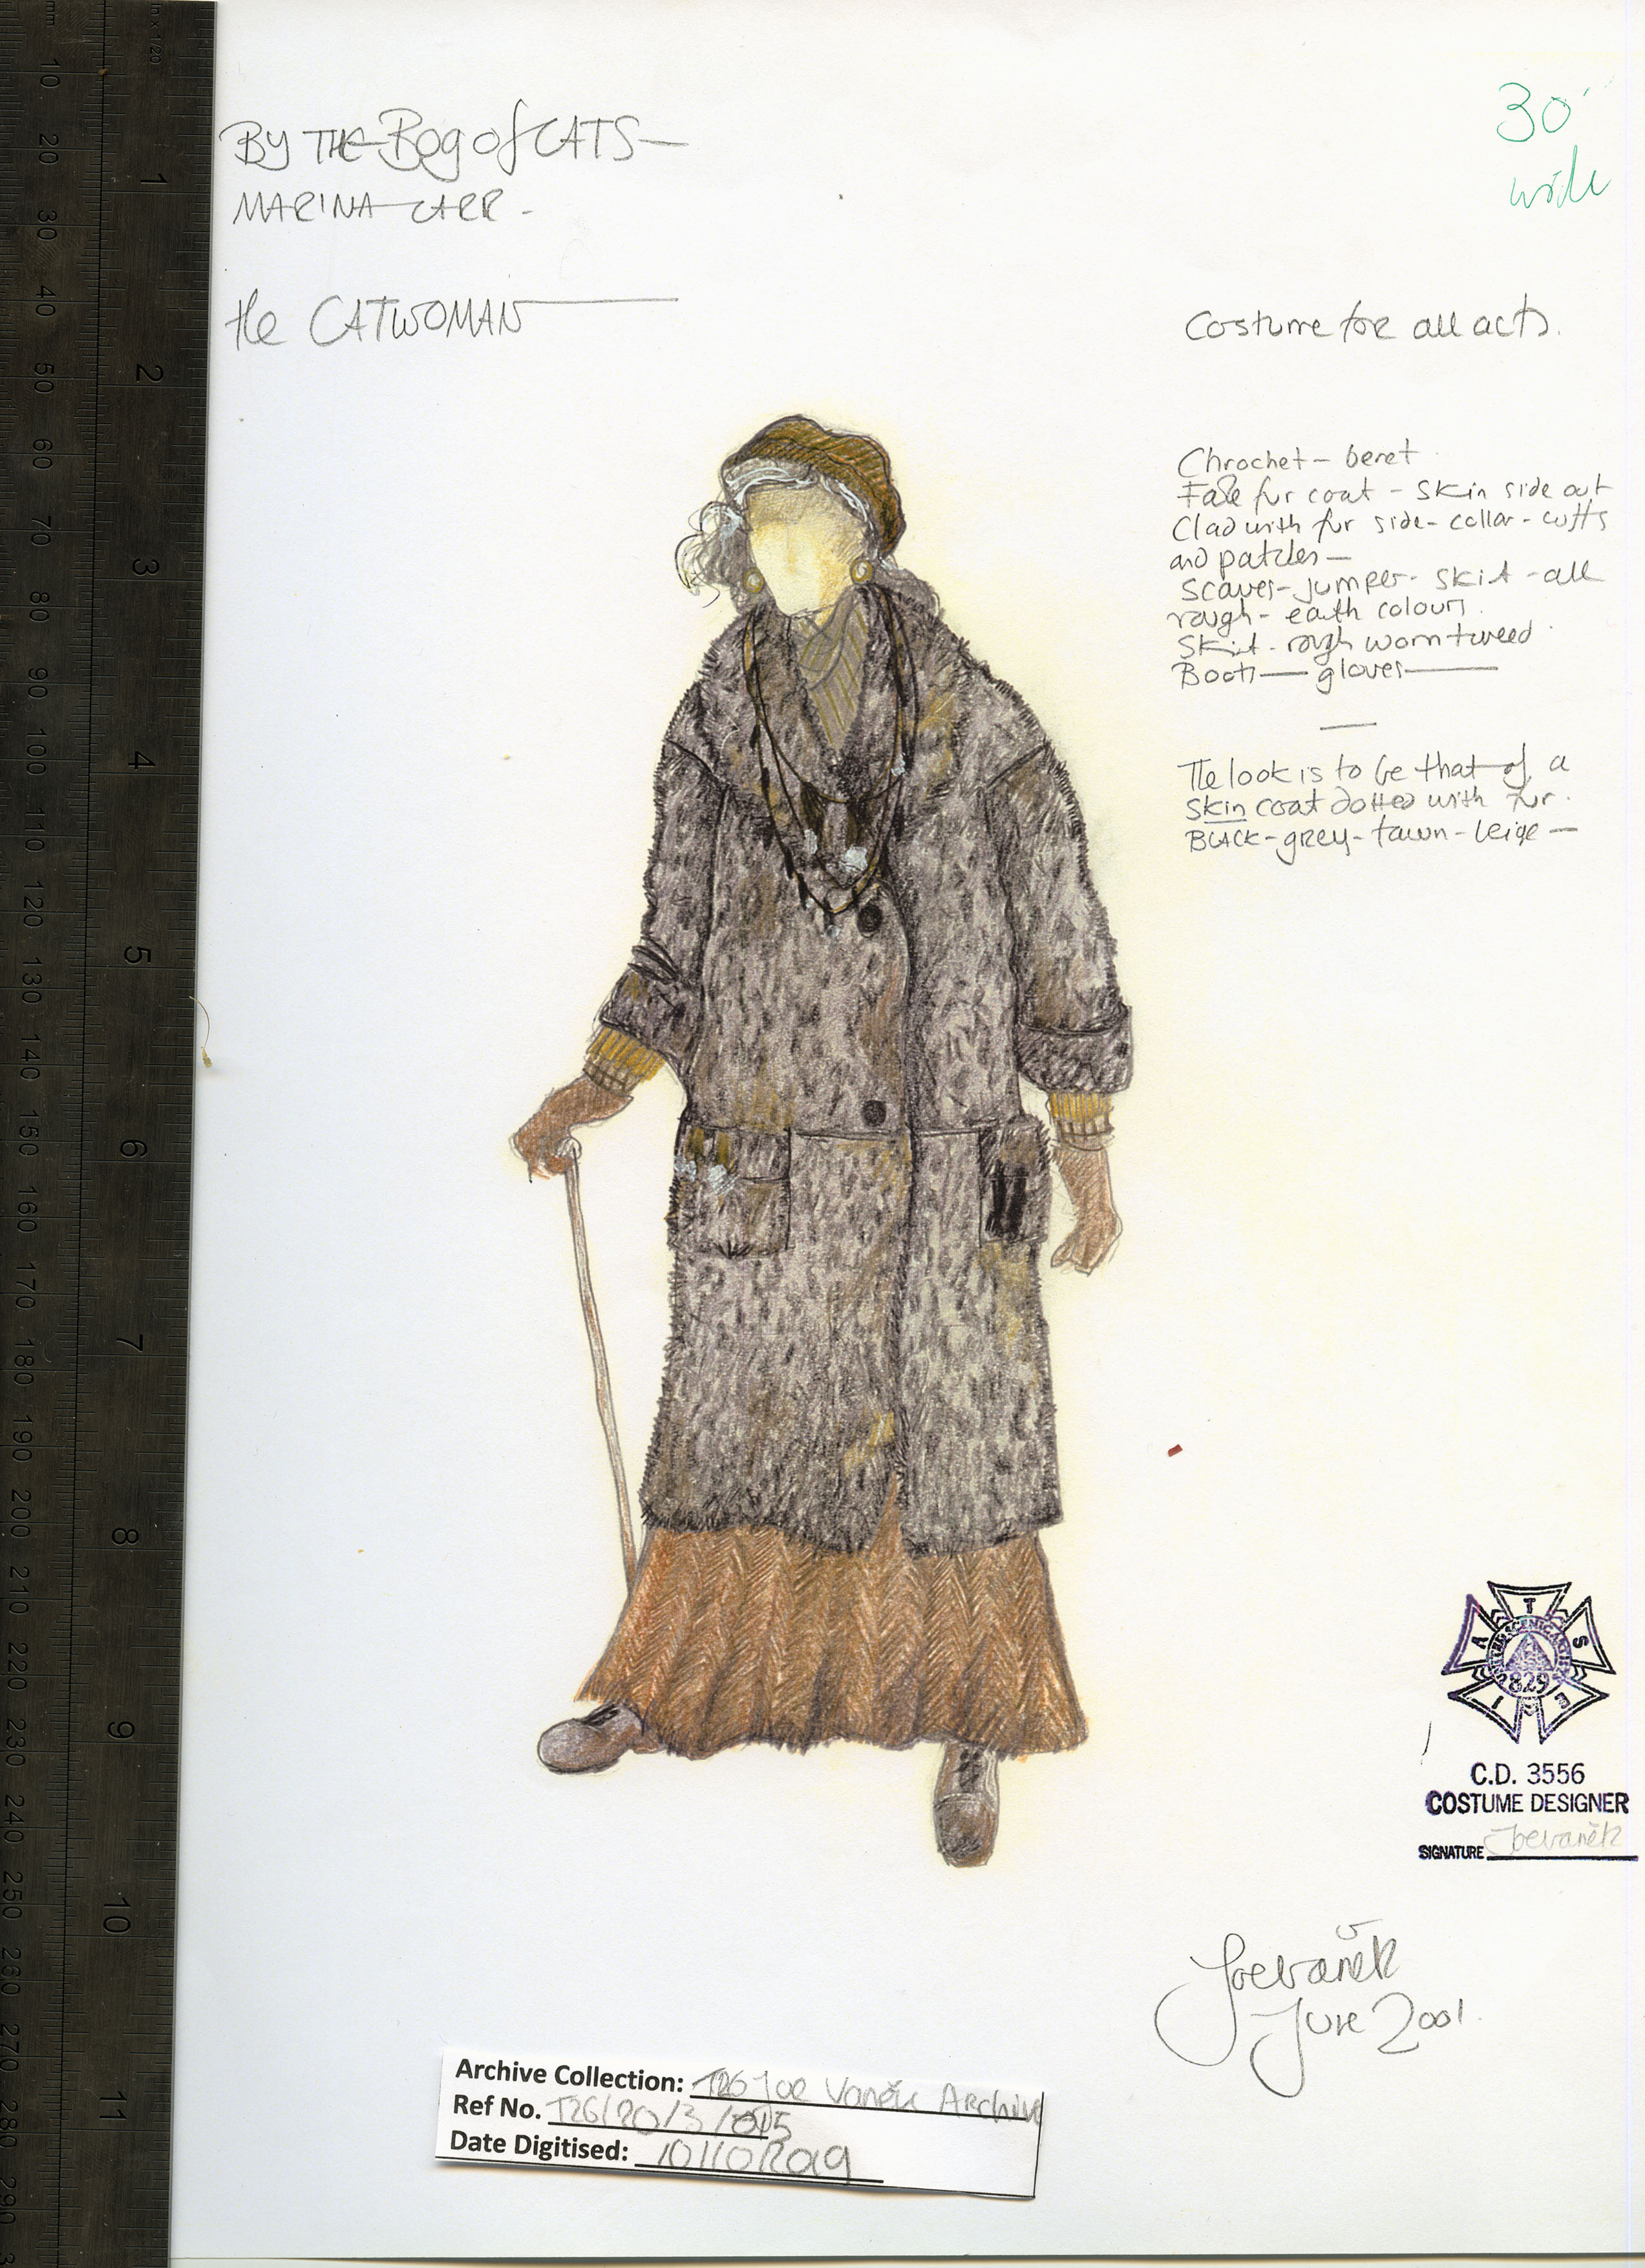 BY THE Bog of CATS—
MARINA CARR -
the CATWOMAN
30'
wide
Costume for all acts.
Chrochet - beret
Fake fur coat - skin side out
Clad with fur side - collar - cuffs
and patches —
Scarves - jumper - skirt - all
rough - earth colours.
Skirt - rough worn tweed
Boots — gloves —
The look is to be that of a
skin coat dotted with fur.
BLACK - grey - fawn - beige —
I A T S E
829
C.D. 3556
COSTUME DESIGNER
SIGNATURE Joe Vaněk
Joe Vaněk
June 2001.
Archive Collection: T26 Joe Vaněk Archive
Ref No. T26/20/3/005
Date Digitised: 10/10/2019
in x 1/20
mm
10 20 30 40 50 60 70 80 90 100 110 120 130 140 150 160 170 180 190 200 210 220 230 240 250 260 270 280 290 3
1 2 3 4 5 6 7 8 9 10 11